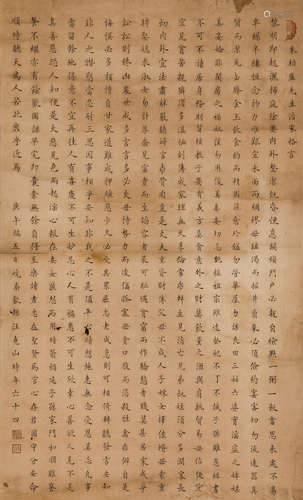 朱柏廬先生治家格言
黎明即起灑掃庭除要內外整潔既昏便息關鎖門戶必親自檢點一粥一飯當思來處不易
半絲半縷恆念物力維艱宜未雨而綢繆毋臨渴而掘井自奉必須儉約宴客切勿流連器具
質而潔瓦缶勝金玉飲食約而精園蔬愈珍饈勿營華屋勿謀良田三姑六婆實淫盜之媒婢
美妾嬌非閨房之福奴僕勿用俊美妻妾切忌豔妝祖宗雖遠祭祀不可不誠子孫雖愚經書
不可不讀居身務期質樸教子要有義方莫貪意外之財莫飲過量之酒與肩挑貿易毋佔便
宜見貧苦親鄰須多溫恤刻薄成家理無久享倫常乖舛立見消亡兄弟叔姪須分多潤寡長
幼內外宜法肅辭嚴聽婦言乖骨肉豈是丈夫重資財薄父母不成人子嫁女擇佳婿毋索重
聘娶媳求淑女勿計厚奩見富貴而生諂容者最可恥遇貧窮而作驕態者賤莫甚居家戒爭
訟訟則終凶處世戒多言言多必失毋恃勢力而凌逼孤寡毋貪口腹而恣殺牲禽乖僻自是
悔誤必多頹惰自甘家道難成狎暱惡少久必受其累屈志老成急則可相依輕聽發言安知
非人之譖愬當忍耐三思因事相爭焉知非我之不是須平心暗想施惠無念受恩莫忘凡事
當留餘地得意不宜再往人有喜慶不可生妒忌心人有禍患不可生欣幸心善欲人見不是
真善惡恐人知便是大惡見色而起淫心報在妻女匿怨而用暗箭禍延子孫家門和順雖饔
飧不繼亦有餘歡國課早完即囊橐無餘自得至樂讀書志在聖賢為官心存君國守分安命
順時聽天為人若此庶乎近焉 庚午端五日 歙縣江 山時年六十四